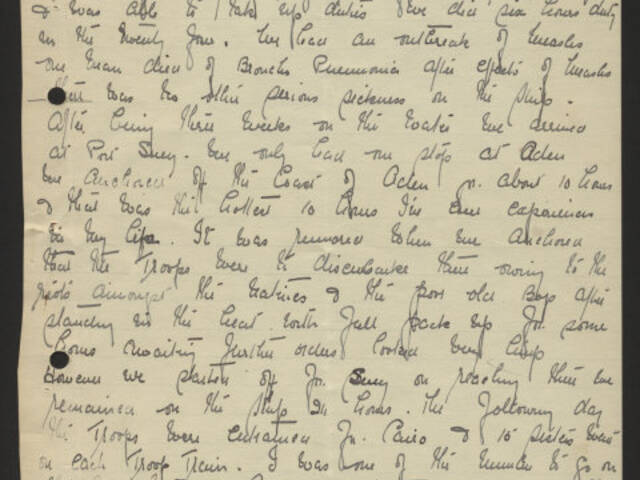 & was able to take up duties We did six hours duty
in the twenty four. We had an outbreak of measles
one man died of Broncho Pneumonia after effects of measles
there was no other serious sickness on the ship.
After being three weeks on the water we arrived
at Port Suey. We only had one stop at Aden
we anchored off the Coast of Aden for about 10 hours
& that was the hottest 10 hours I've ever experienced
in my life. It was rumored when we anchored
that the Troops were to disembarke there owing to the
riots amongst the natives & the poor old Boys after
standing in the heat with full pack up for some
hours awaiting further orders looked very limp
However we started off for Suey on reaching there we
remained on the ship 24 hours. The following day
the Troops were entrained for Cairo & 15 sisters went
on each Troop Train. I was one of the number to go on